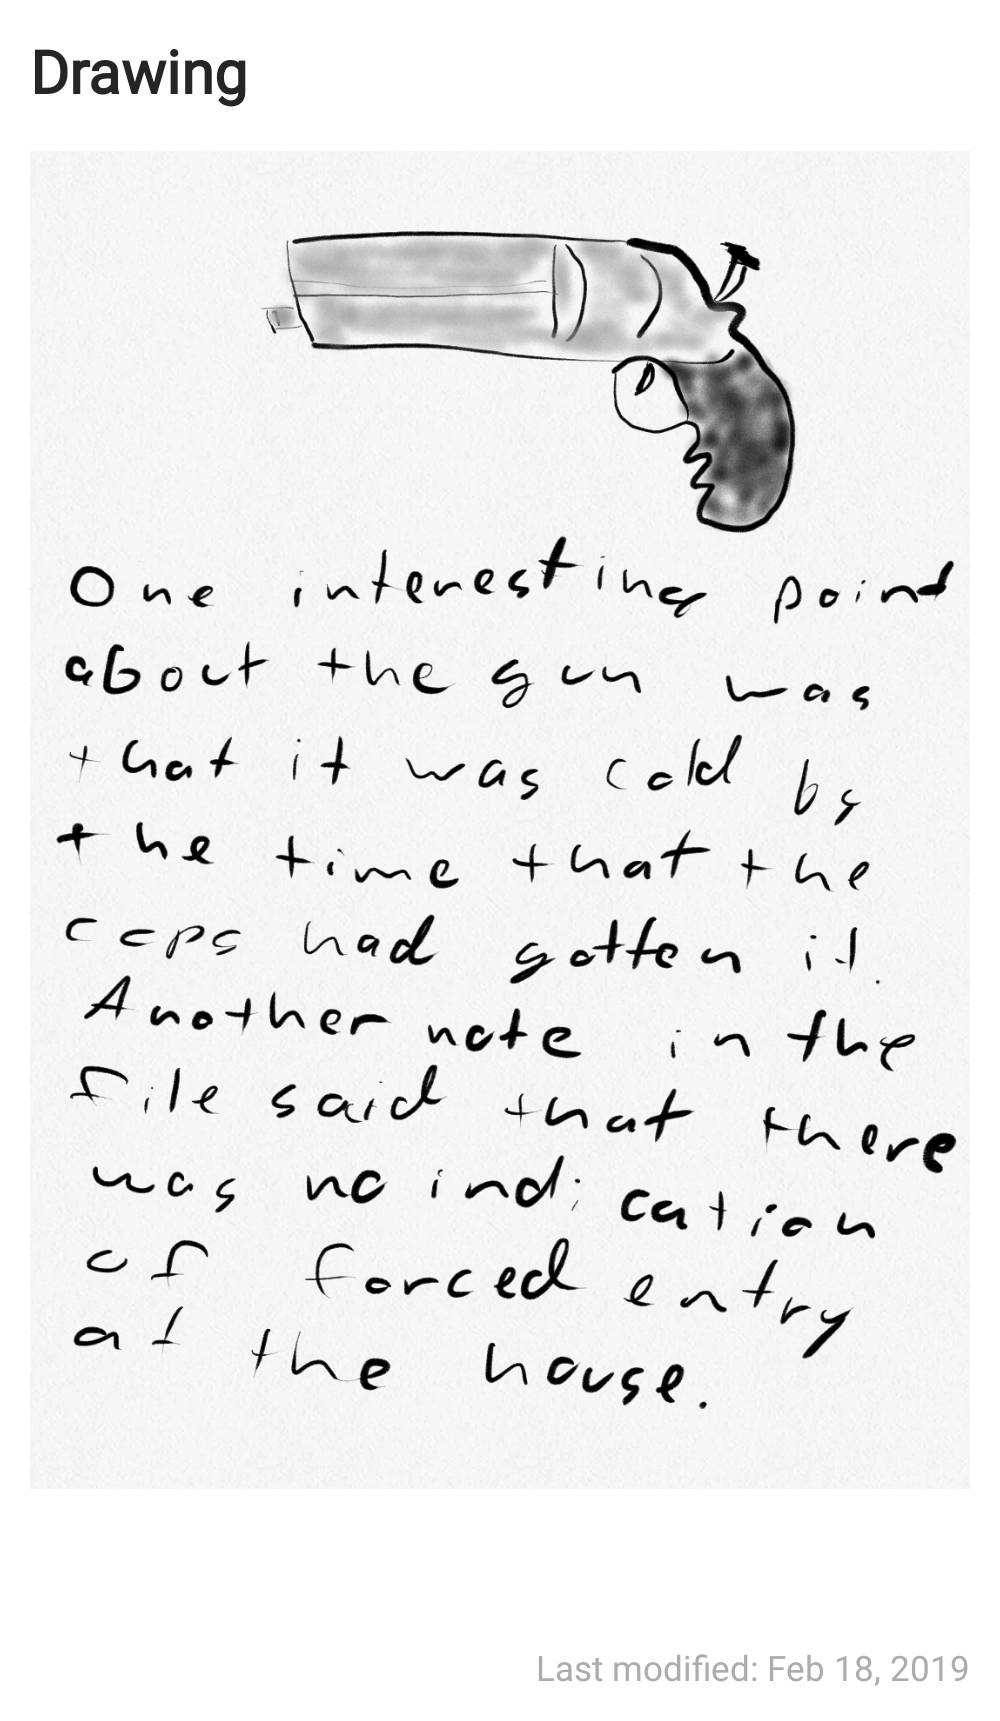 Drawing
One interesting point
about the gun was
that it was cold by
the time that the
cops had gotten it.
Another note in the
file said that there
was no indication
of forced entry
at the house.
Last modified: Feb 18, 2019